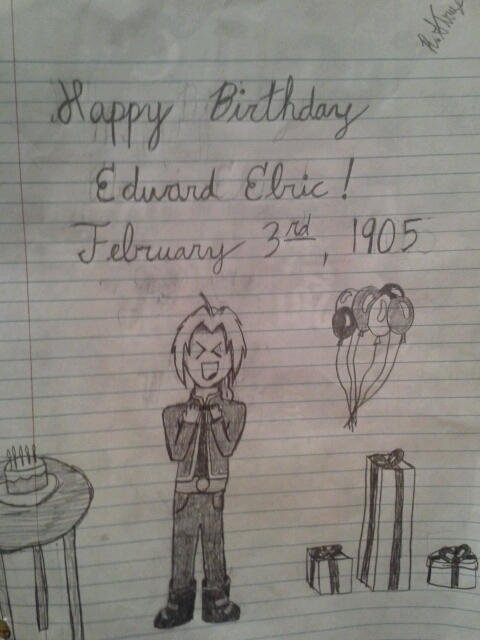 Happy Birthday
Edward Elric!
February 3rd, 1905